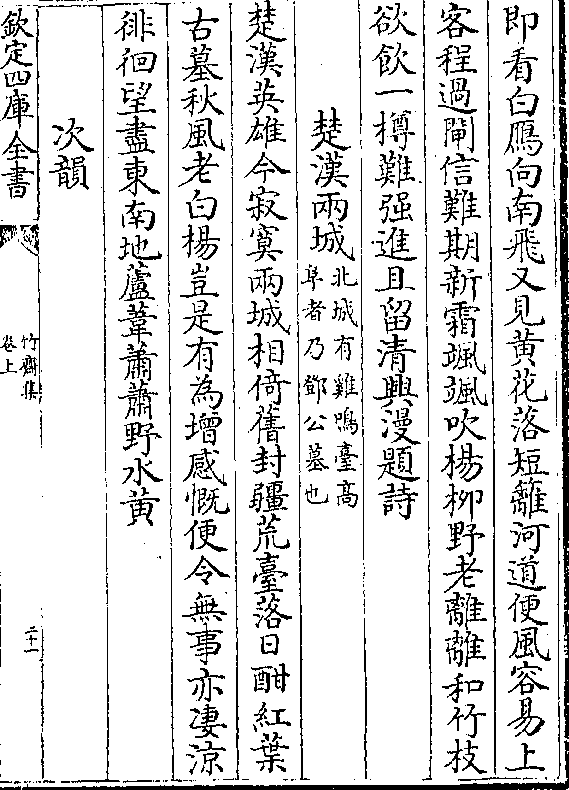 即看白鴈向南飛又見黄花落短籬河道便風容易上
客程過閘信難期新霜颯颯吹楊栁野老離離和竹枝
欲飲一樽難强進且留清興漫題詩
楚漢兩城
北城有雞鳴臺高
阜者乃鄧公墓也
楚漢英雄今寂寞兩城相倚舊封疆荒臺落日酣紅葉
古墓秋風老白楊豈是有為增感慨便令無事亦凄涼
徘徊望盡東南地蘆葦蕭蕭野水黄
次韻
欽定四庫全書
竹齋集
卷上
二十一